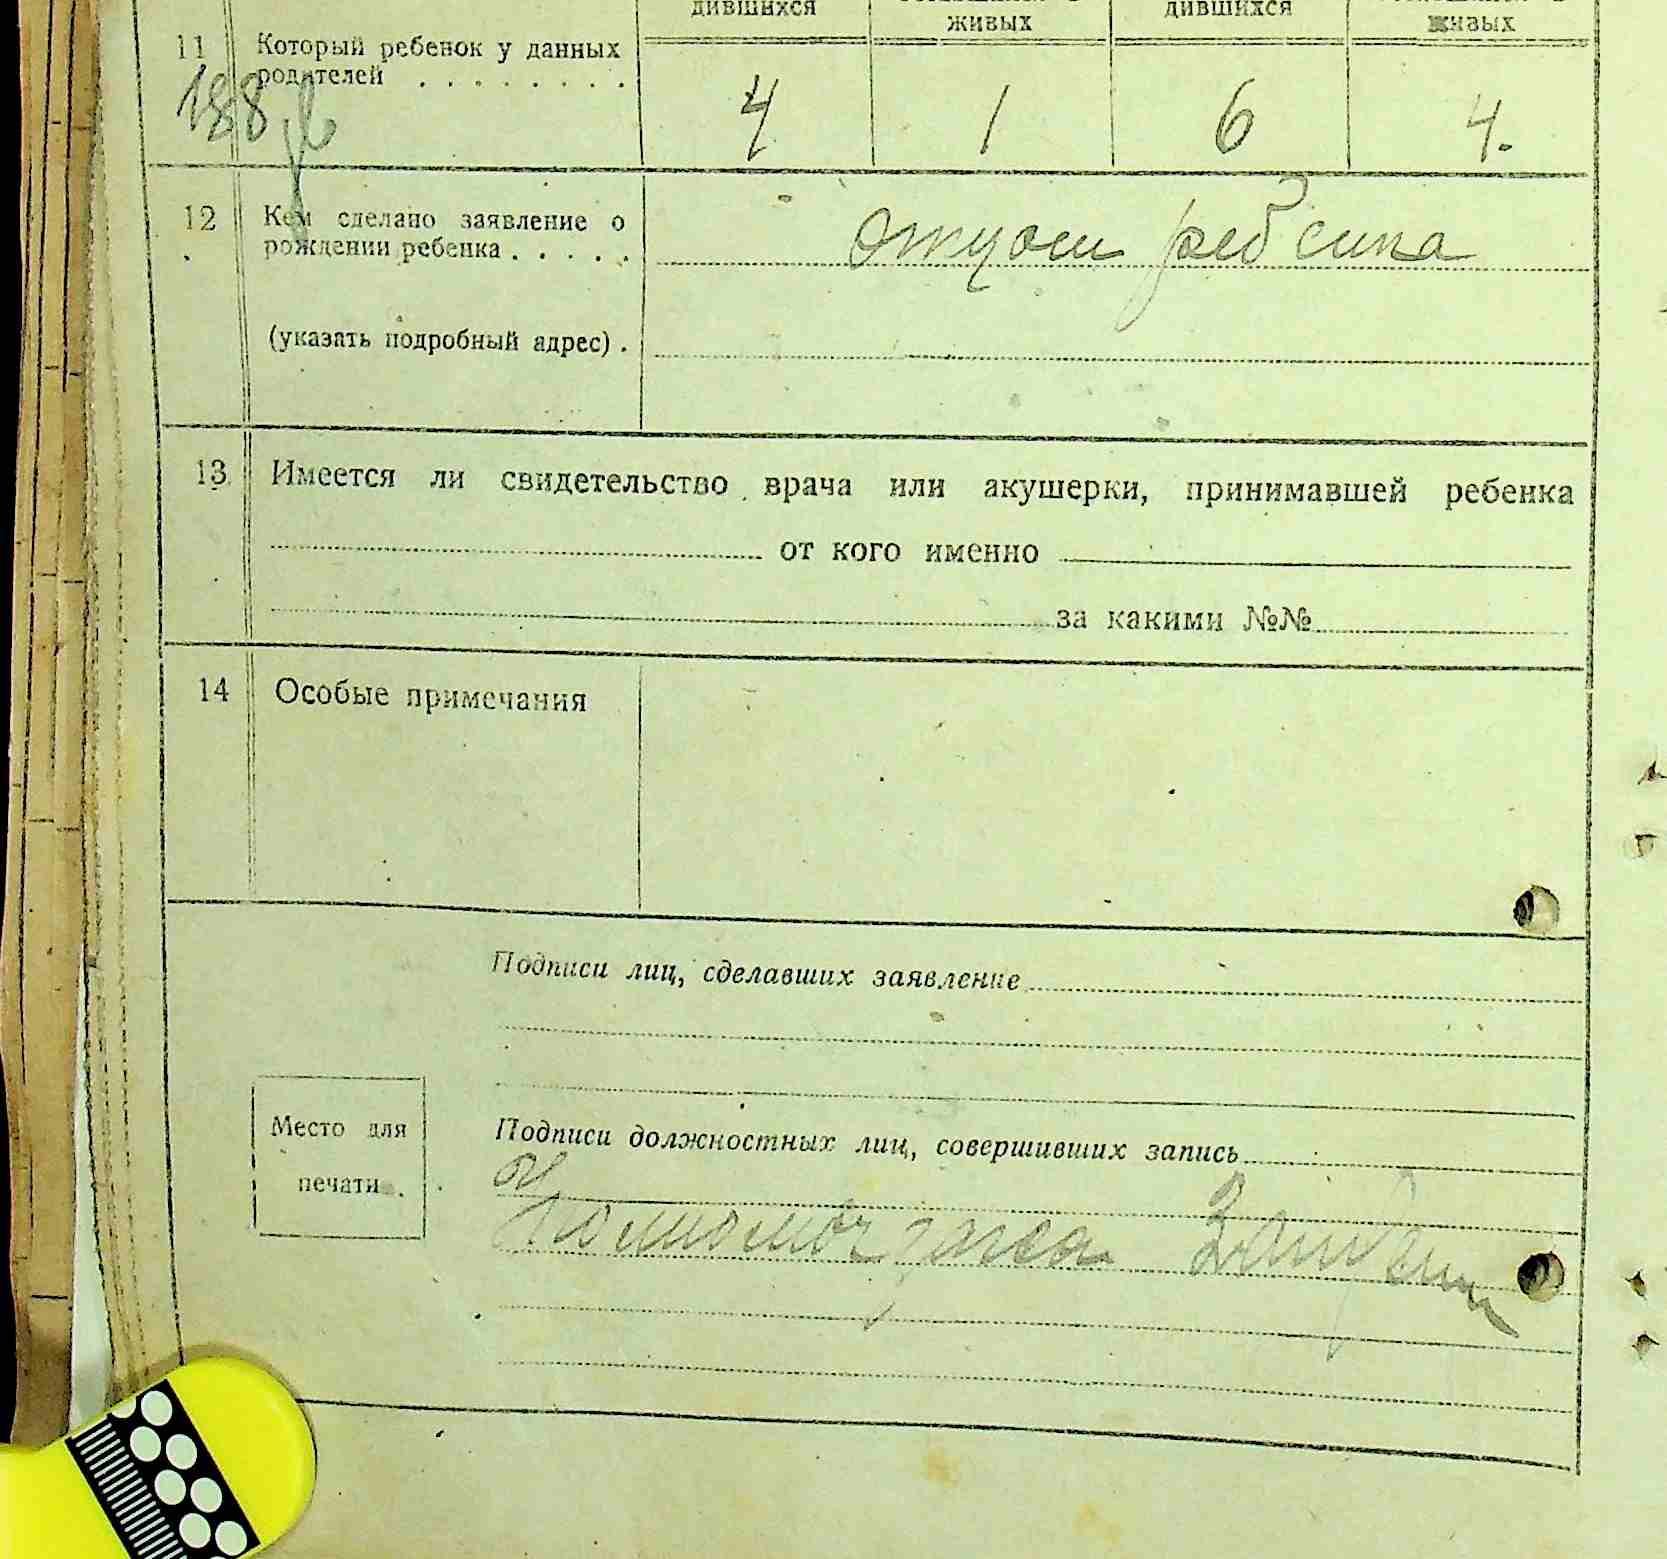 дившихся живых дившихся живых
11 Который ребенок у данных
родителей . . . . . . . .
188
4 1 6 4.
12 Кем сделано заявление о
рождении ребенка . . . . .
отцом ребенка
(указать подробный адрес) .
13 Имеется ли свидетельство врача или акушерки, принимавшей ребенка
от кого именно
за какими №№
14 Особые примечания
Подписи лиц, сделавших заявление
Место для
печати.
Подписи должностных лиц, совершивших запись